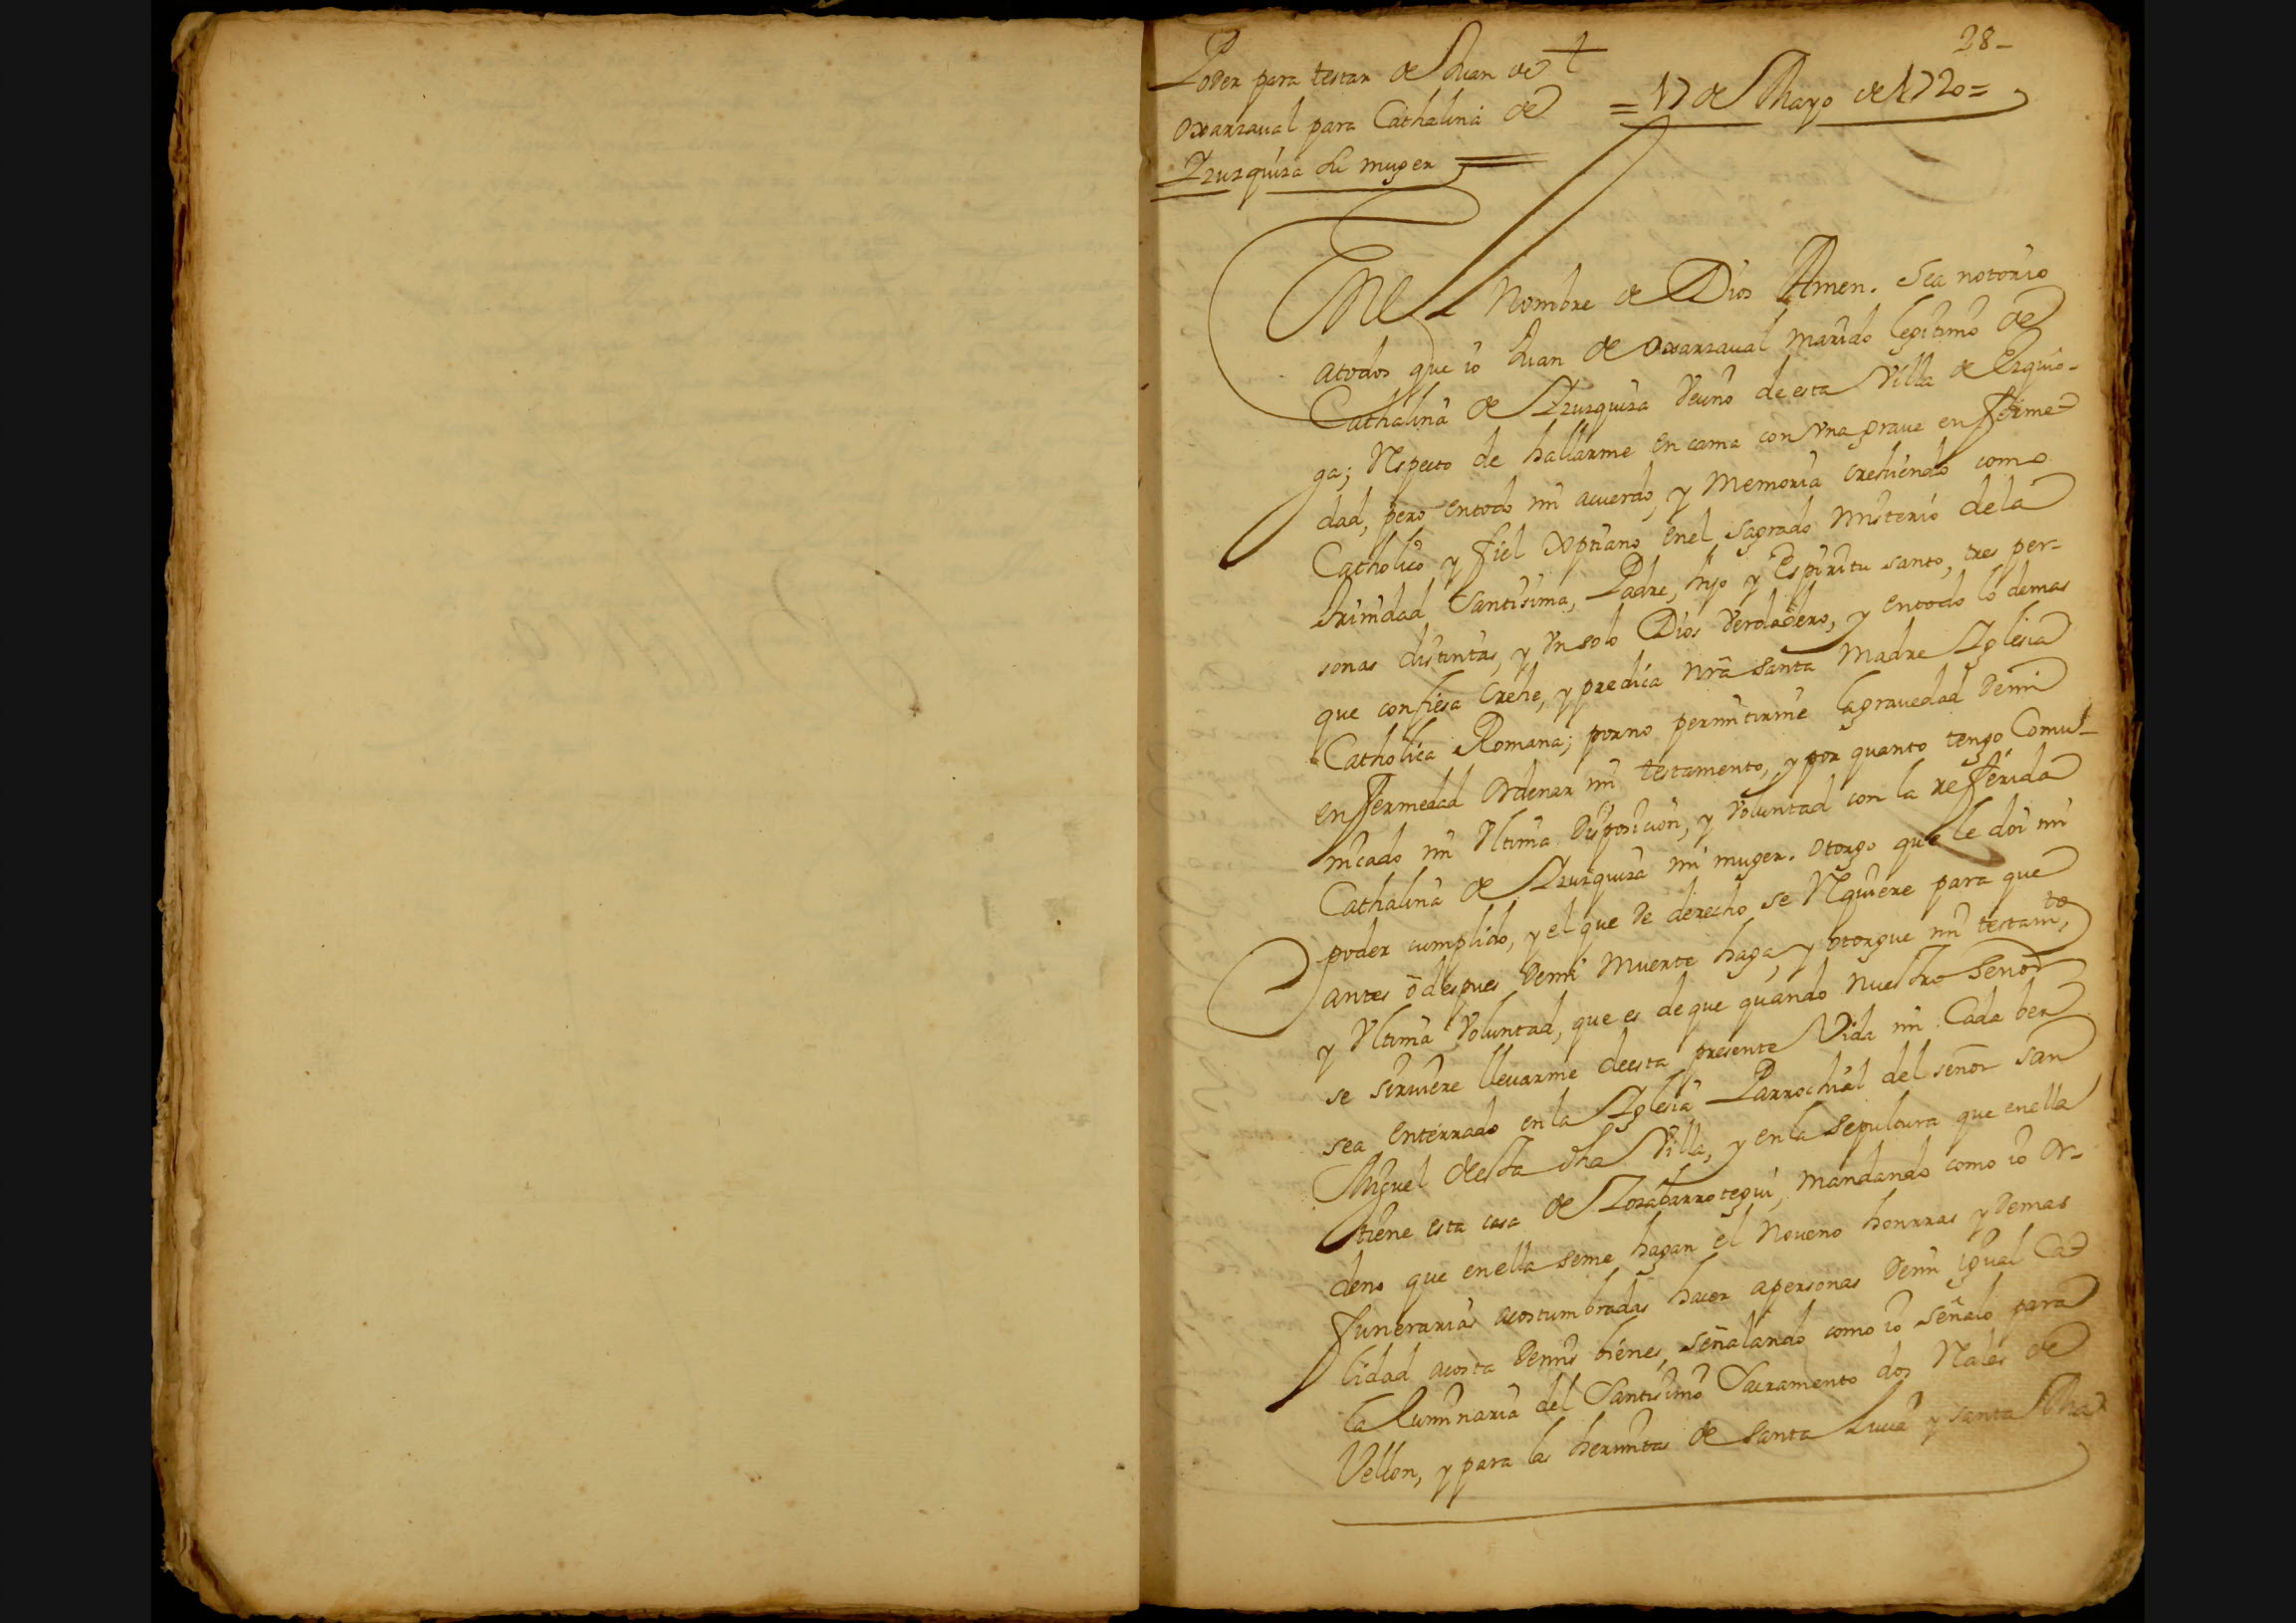 28-
Poder para testar de Juan de
Oxarzaval para Cathalina de
Yzuzquiza su muger
= 17 de Mayo de 1720 =
En el Nombre de Dios Amen. Sea notorio
atodos que io Juan de Oxarzaval marido legitimo de
Cathalina de Yzuzquiza Vecino de esta Villa de Ezquio-
ga; Respecto de hallarme en cama con Vna grave enfferme-
dad, pero entodo mi acuerdo, y Memoria crehiendo como
Catholico y fiel Xptiano enel Sagrado misterio dela
trinidad Santisima, Padre, hijo y Espiritu santo, tres per-
sonas distintas, y Vn solo Dios Verdadero, y entodo lo demas
que confiesa Crehe, y predica nrã Santa Madre Yglesia
Catholica Romana; porno permitirme lagravedad demi
enffermedad Ordenar mi testamento, y por quanto tengo Comu-
nicado mi Vltima Disposicion, y Voluntad con la refferida
Cathalina de Yzuzquiza mi muger. Otorgo que le doi mi
poder cumplido, y el que de derecho se Requiere para que
antes õ despues demi Muerte haga, y otorgue mi testamto,
y Vltima Voluntad, que es deque quando nuestro Señor
se sirviere llevarme deesta presente Vida mi Cadaber
sea Enterrado en la Yglesia Parrochial del señor San
Miguel desta dha Villa, y en la Sepultura que enella
tiene esta casa de Lozabarrotegui, mandando como io or-
deno que enella seme hagan el Noveno honrras y demas
funerarias acostumbradas hacer apersonas demi igual Ca-
lidad acosta demis bienes, señalando como io señalo para
la Luminaria del Santisimo Sacramento dos Rales de
Vellon, y para las hermitas de Santa Lucia y santa Ma